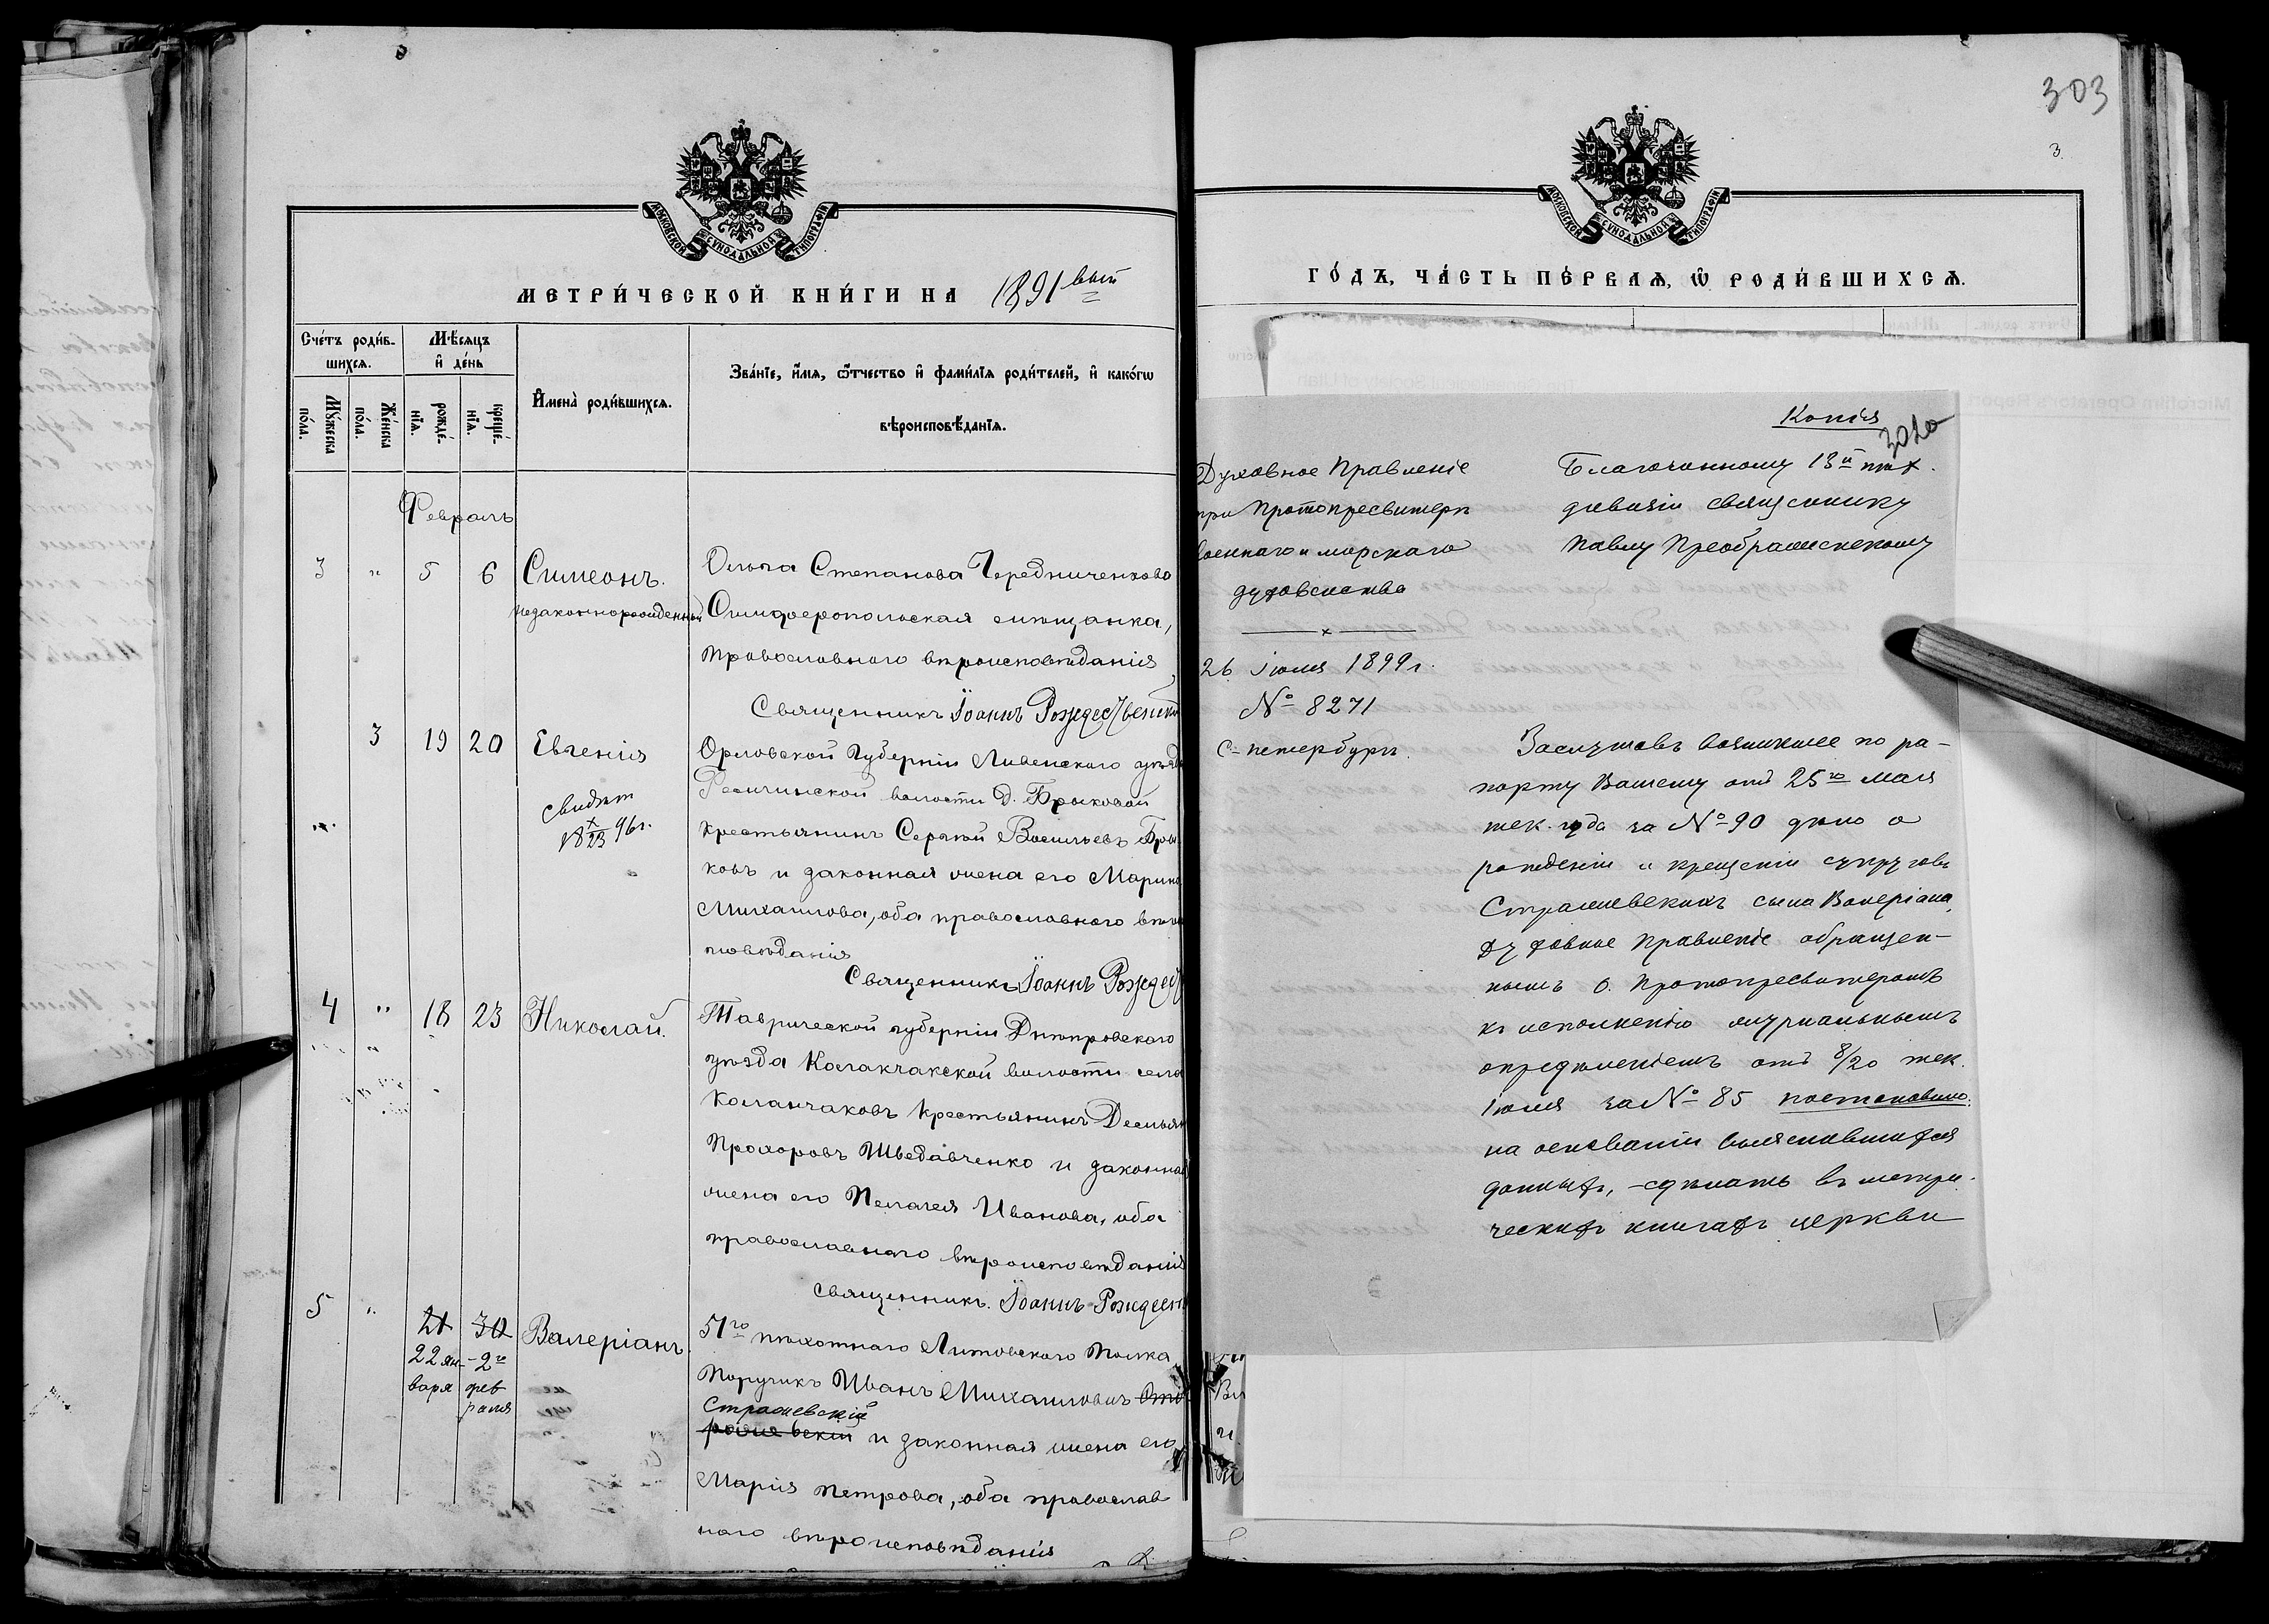 303
3.
МОСКОВСКОЙ СУНОДАЛЬНОЙ ТИПОГРАФІИ
МЕТРИ́ЧЕСКОЙ КНИ́ГИ НА 1891 вый
Сче́тъ роди́в-
шихсѧ.
Мѣ́сѧцъ
и҆ де́нь
Мꙋ́жеска
по́ла.
Же́нска
по́ла.
рожде́-
нїѧ.
креще́-
нїѧ.
И҆мена̀ роди́вшихсѧ.
Зва́нїе, и҆́мѧ, ѻ҆́тчество и҆ фами́лїѧ роди́телей, и҆ како́гѡ
вѣроисповѣ́данїѧ.
Февраль
3 " 5 6 Симеонъ.
незаконнорожденный
Ольга Степанова Чередниченкова
Симферопольская мѣщанка,
православнаго вѣроисповѣданія
Священникъ Іоаннъ Рождественск
3 19 20 Евгенія
свидѣт
18 X/23 96 г.
Орловской Губерніи Ливенскаго уѣзд
волости д. Брыковой
крестьянинъ Сергѣй Васильевъ Бры
ковъ и законная жена его Марина
Михаилова, оба православнаго вѣрои
повѣданія
Священникъ Іоаннъ Рождес
4 " 18 23 Николай.
Таврической губерніи Днѣпровскаго
уѣзда Каланчакской волости села
Каланчаковъ крестьянинъ Демьян
Прохоровъ Шведавченко и законная
жена его Пелагея Иванова, оба
православнаго вѣроисповѣданія
Священникъ. Іоаннъ Рождеств
5 " 21 30 Валеріанъ
22 ян-
варя
2го
фев
раля
51го пѣхотнаго Литовскаго полка
Поручикъ Иванъ Михаиловичъ Ст
Стражевскій
ражевскій и законная жена его
Марія Петрова, оба православ
наго вѣроисповѣданія
МОСКОВСКОЙ СУНОДАЛЬНОЙ ТИПОГРАФІИ
ГО́ДЪ, ЧА́СТЬ ПЕ́РВАѦ, Ѡ҆ РОДИ́ВШИХСѦ.
Копія
Духовное Правленіе
при Протопресвитерѣ
военнаго и морскаго
духовенства
26 іюля 1899 г.
№ 8271
С-петербургъ.
Благочинному 13й пѣх.
дивизіи священнику
Павлу Преображенскому
Заслушавъ возникшее по ра-
порту Вашему отъ 25го мая
тек. года за № 90 дѣло о
рожденіи и крещеніи супруговъ
Стражевскихъ сына Валеріана,
Духовное Правленіе обращен-
нымъ О. Протопресвитеромъ
къ исполненію журнальнымъ
опредѣленіемъ отъ 8/20 тек.
іюля за № 85 постановило:
на основаніи выяснившихся
данныхъ, - сдѣлать въ метри-
ческихъ книгахъ церкви